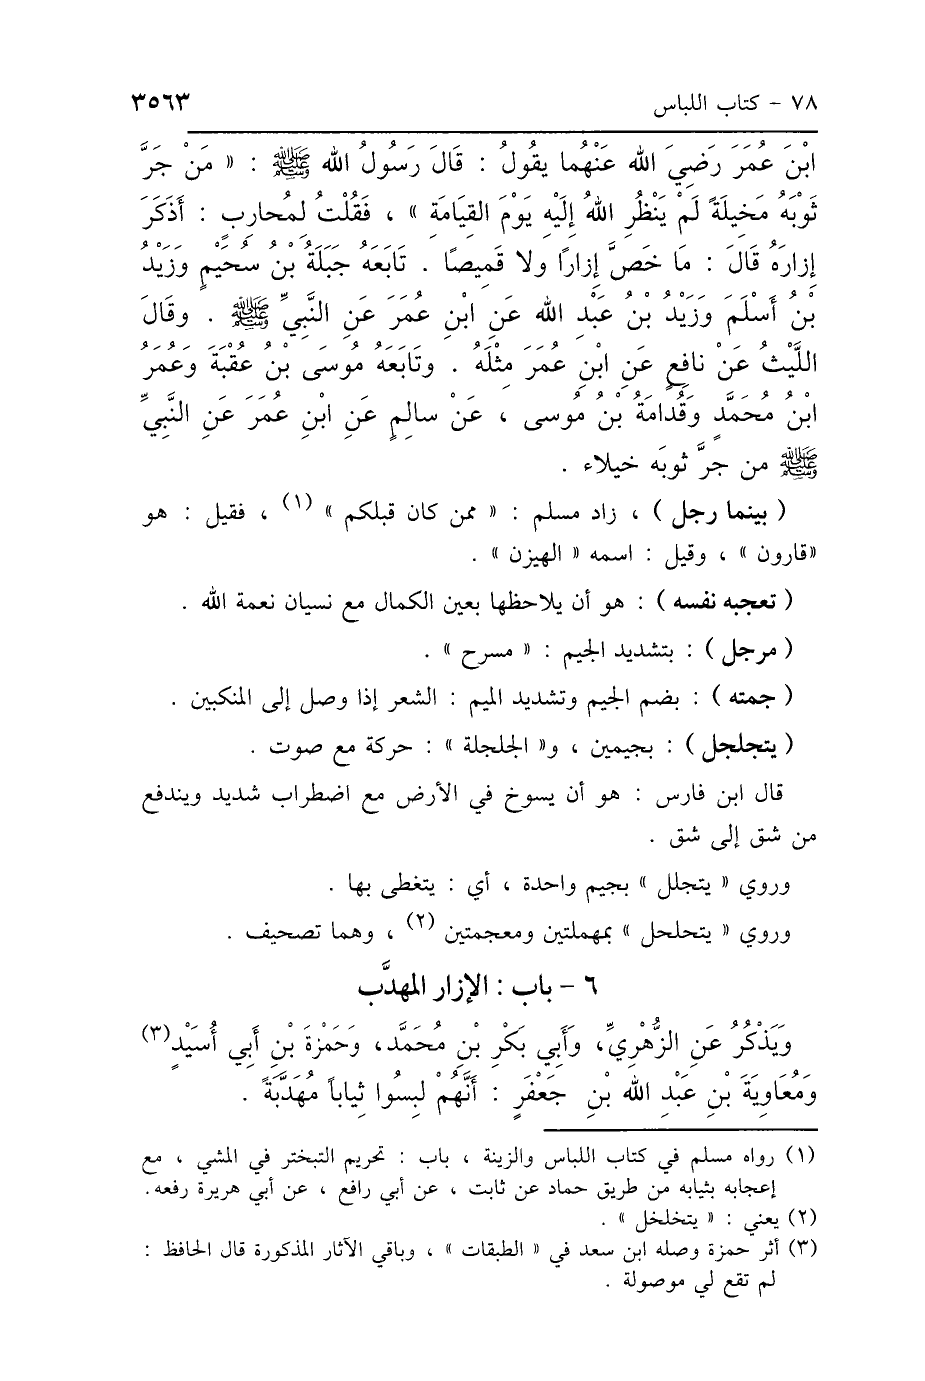 ٧٨ - كتاب اللباس ٣٥٦٣
ابْنَ عُمَرَ رَضِيَ الله عَنْهُما يقُولُ : قَالَ رَسُولُ الله ﷺ : « مَنْ جَرَّ
ثوْبَهُ مَخيلَةً لَمْ يَنْظُرِ اللهُ إِلَيْهِ يَوْمَ القِيَامَةِ » ، فَقُلْتُ لِمُحارِبٍ : أَذَكَرَ
إِزارَهُ قَالَ : مَا خَصَّ إِزارًا ولا قَميصًا . تَابَعَهُ جَبَلَةُ بْنُ سُحَيْمٍ وَزَيْدُ
بْنُ أَسْلَمَ وَزَيْدُ بْنُ عَبْدِ الله عَنِ ابْنِ عُمَرَ عَنِ النَّبِيِّ ﷺ . وقَالَ
اللَّيْثُ عَنْ نافِعٍ عَنِ ابْنِ عُمَرَ مِثْلَهُ . وتَابَعَهُ مُوسَى بْنُ عُقْبَةَ وَعُمَرُ
ابْنُ مُحَمَّدٍ وَقُدامَةُ بْنُ مُوسى ، عَنْ سالِمٍ عَنِ ابْنِ عُمَرَ عَنِ النَّبِيِّ
ﷺ من جرَّ ثوبَه خيلاء .
( بينما رجل ) ، زاد مسلم : « ممن كان قبلكم » (١) ، فقيل : هو
«قارون » ، وقيل : اسمه « الهيزن » .
( تعجبه نفسه ) : هو أن يلاحظها بعين الكمال مع نسيان نعمة الله .
( مرجل ) : بتشديد الجيم : « مسرح » .
( جمته ) : بضم الجيم وتشديد الميم : الشعر إذا وصل إلى المنكبين .
( يتجلجل ) : بجيمين ، و« الجلجلة » : حركة مع صوت .
قال ابن فارس : هو أن يسوخ في الأرض مع اضطراب شديد ويندفع
من شق إلى شق .
وروي « يتجلل » بجيم واحدة ، أي : يتغطى بها .
وروي « يتحلحل » بمهملتين ومعجمتين (٢) ، وهما تصحيف .
٦ - باب : الإزار المهدَّب
وَيَذْكُرُ عَنِ الزُّهْرِيِّ، وَأَبِي بَكْرِ بْنِ مُحَمَّد، وَحَمْزَةَ بْنِ أَبي أُسَيْدٍ(٣)
وَمُعَاوِيَةَ بْنِ عَبْدِ الله بْنِ جَعْفَرٍ : أَنَّهُمْ لبِسُوا ثِياباً مُهَدَّبَةً .
(١) رواه مسلم في كتاب اللباس والزينة ، باب : تحريم التبختر في المشي ، مع
إعجابه بثيابه من طريق حماد عن ثابت ، عن أبي رافع ، عن أبي هريرة رفعه.
(٢) يعني : « يتخلخل » .
(٣) أثر حمزة وصله ابن سعد في « الطبقات » ، وباقي الآثار المذكورة قال الحافظ :
لم تقع لي موصولة .